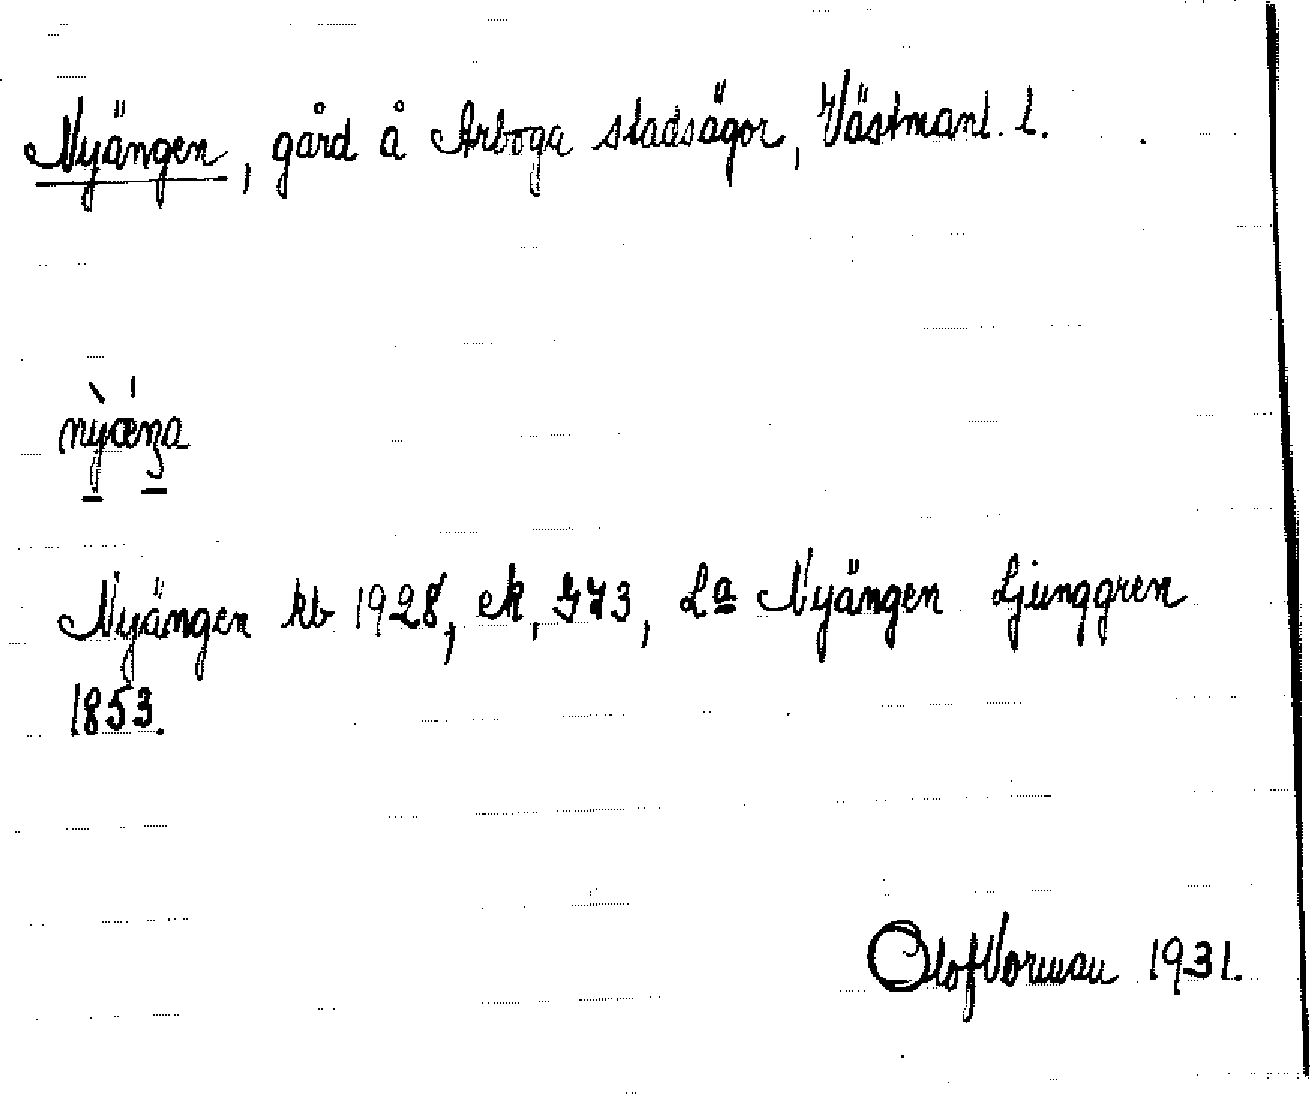 Nyängen, gård å Arboga stadsägor, Västmanl. l.
nỳǽŋa
Nyängen kb 1928, ek, 573, La Nyängen Ljunggren
1853.
Olof Vorman 1931.